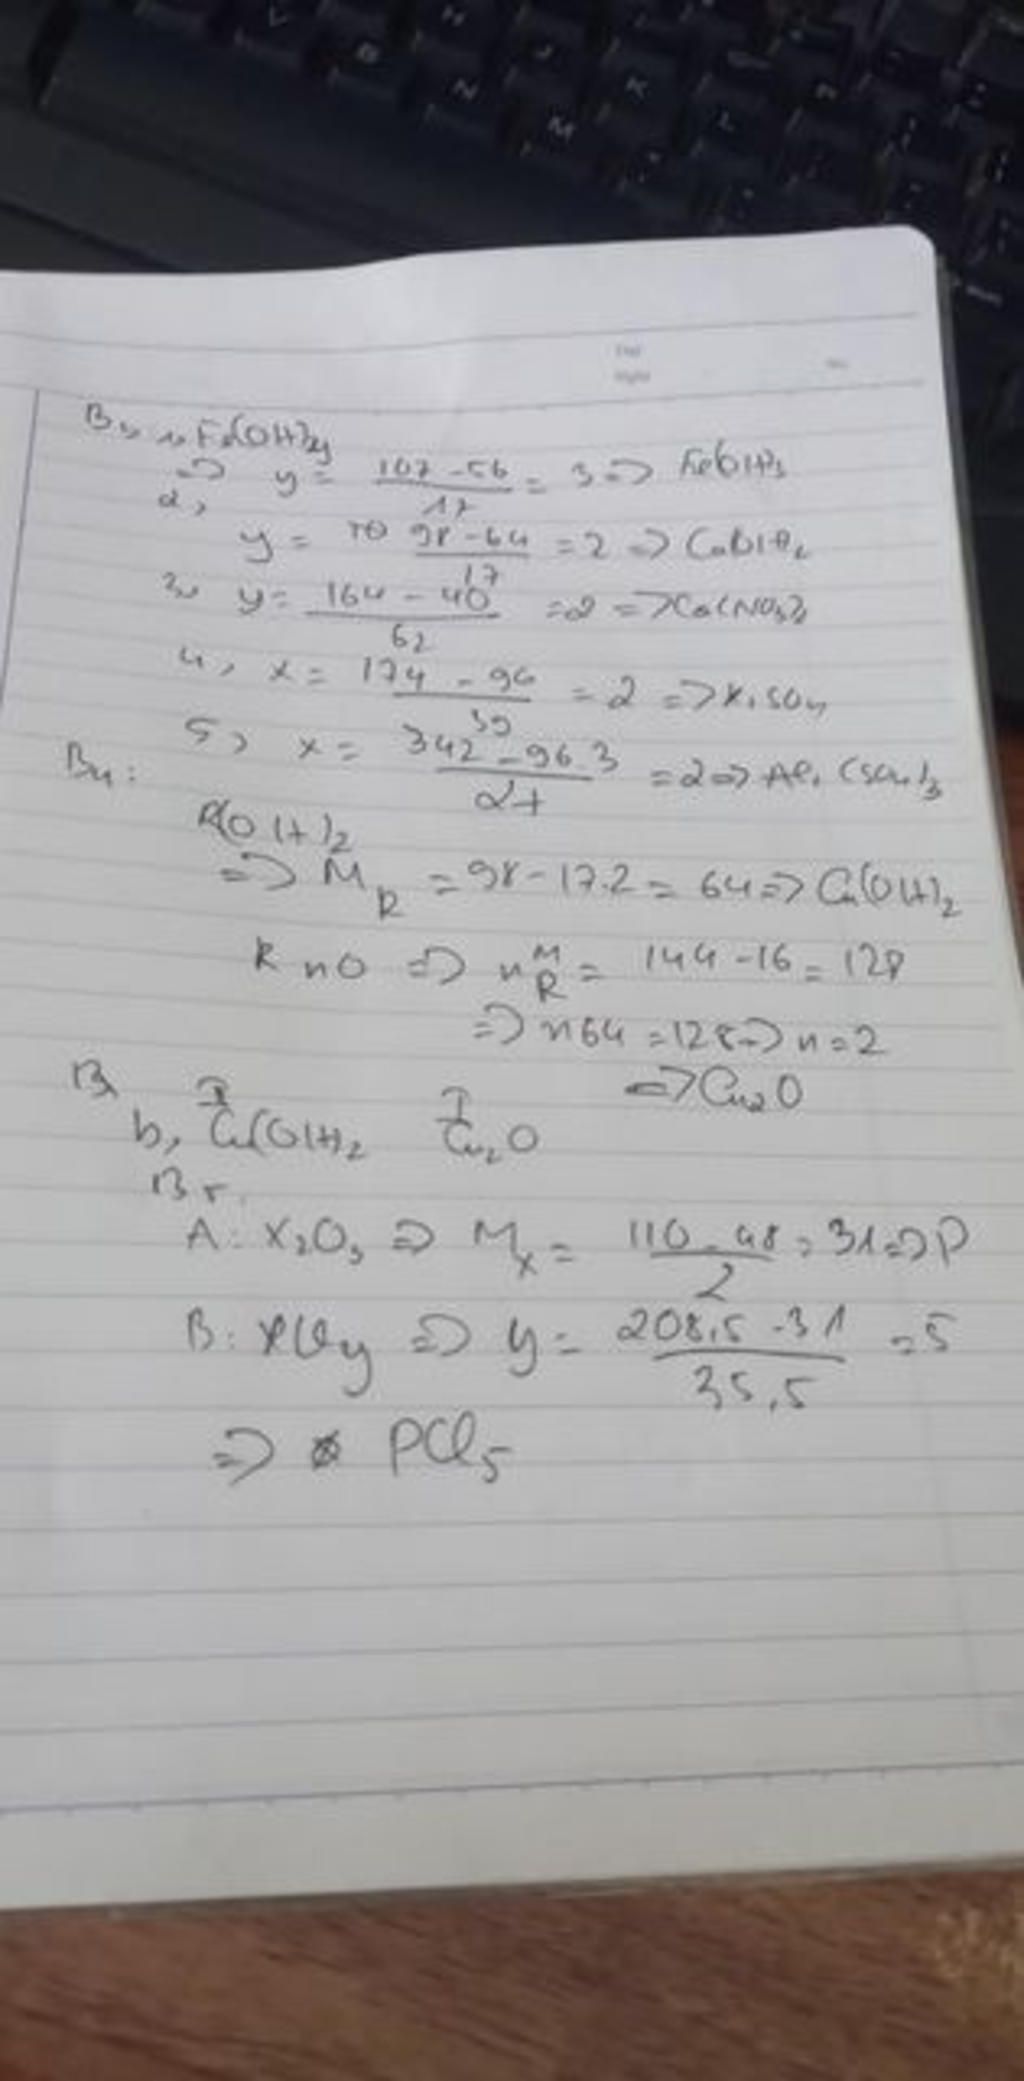 B3, 1, Fe(OH)y
=> y = 107 - 56 / 17 = 3 => Fe(OH)3
2,
y = 98 - 64 / 17 = 2 => Cu(OH)2
3, y = 164 - 40 / 62 = 2 => Ca(NO3)2
4, x = 174 - 96 / 39 = 2 => K2SO4
5, x = 342 - 96.3 / 27 = 2 => Al2(SO4)3
B4:
R(OH)2
=> M R = 98 - 17.2 = 64 => Cu(OH)2
R n O => n M R = 144 - 16 = 128
=> n 64 = 128 => n = 2
=> Cu2O
b, Cu(OH)2 I Cu2O
B5
A: X2O3 => Mx = 110 - 48 / 2 = 31 => P
B: XCly => y = 208,5 - 31 / 35,5 = 5
=> PCl5